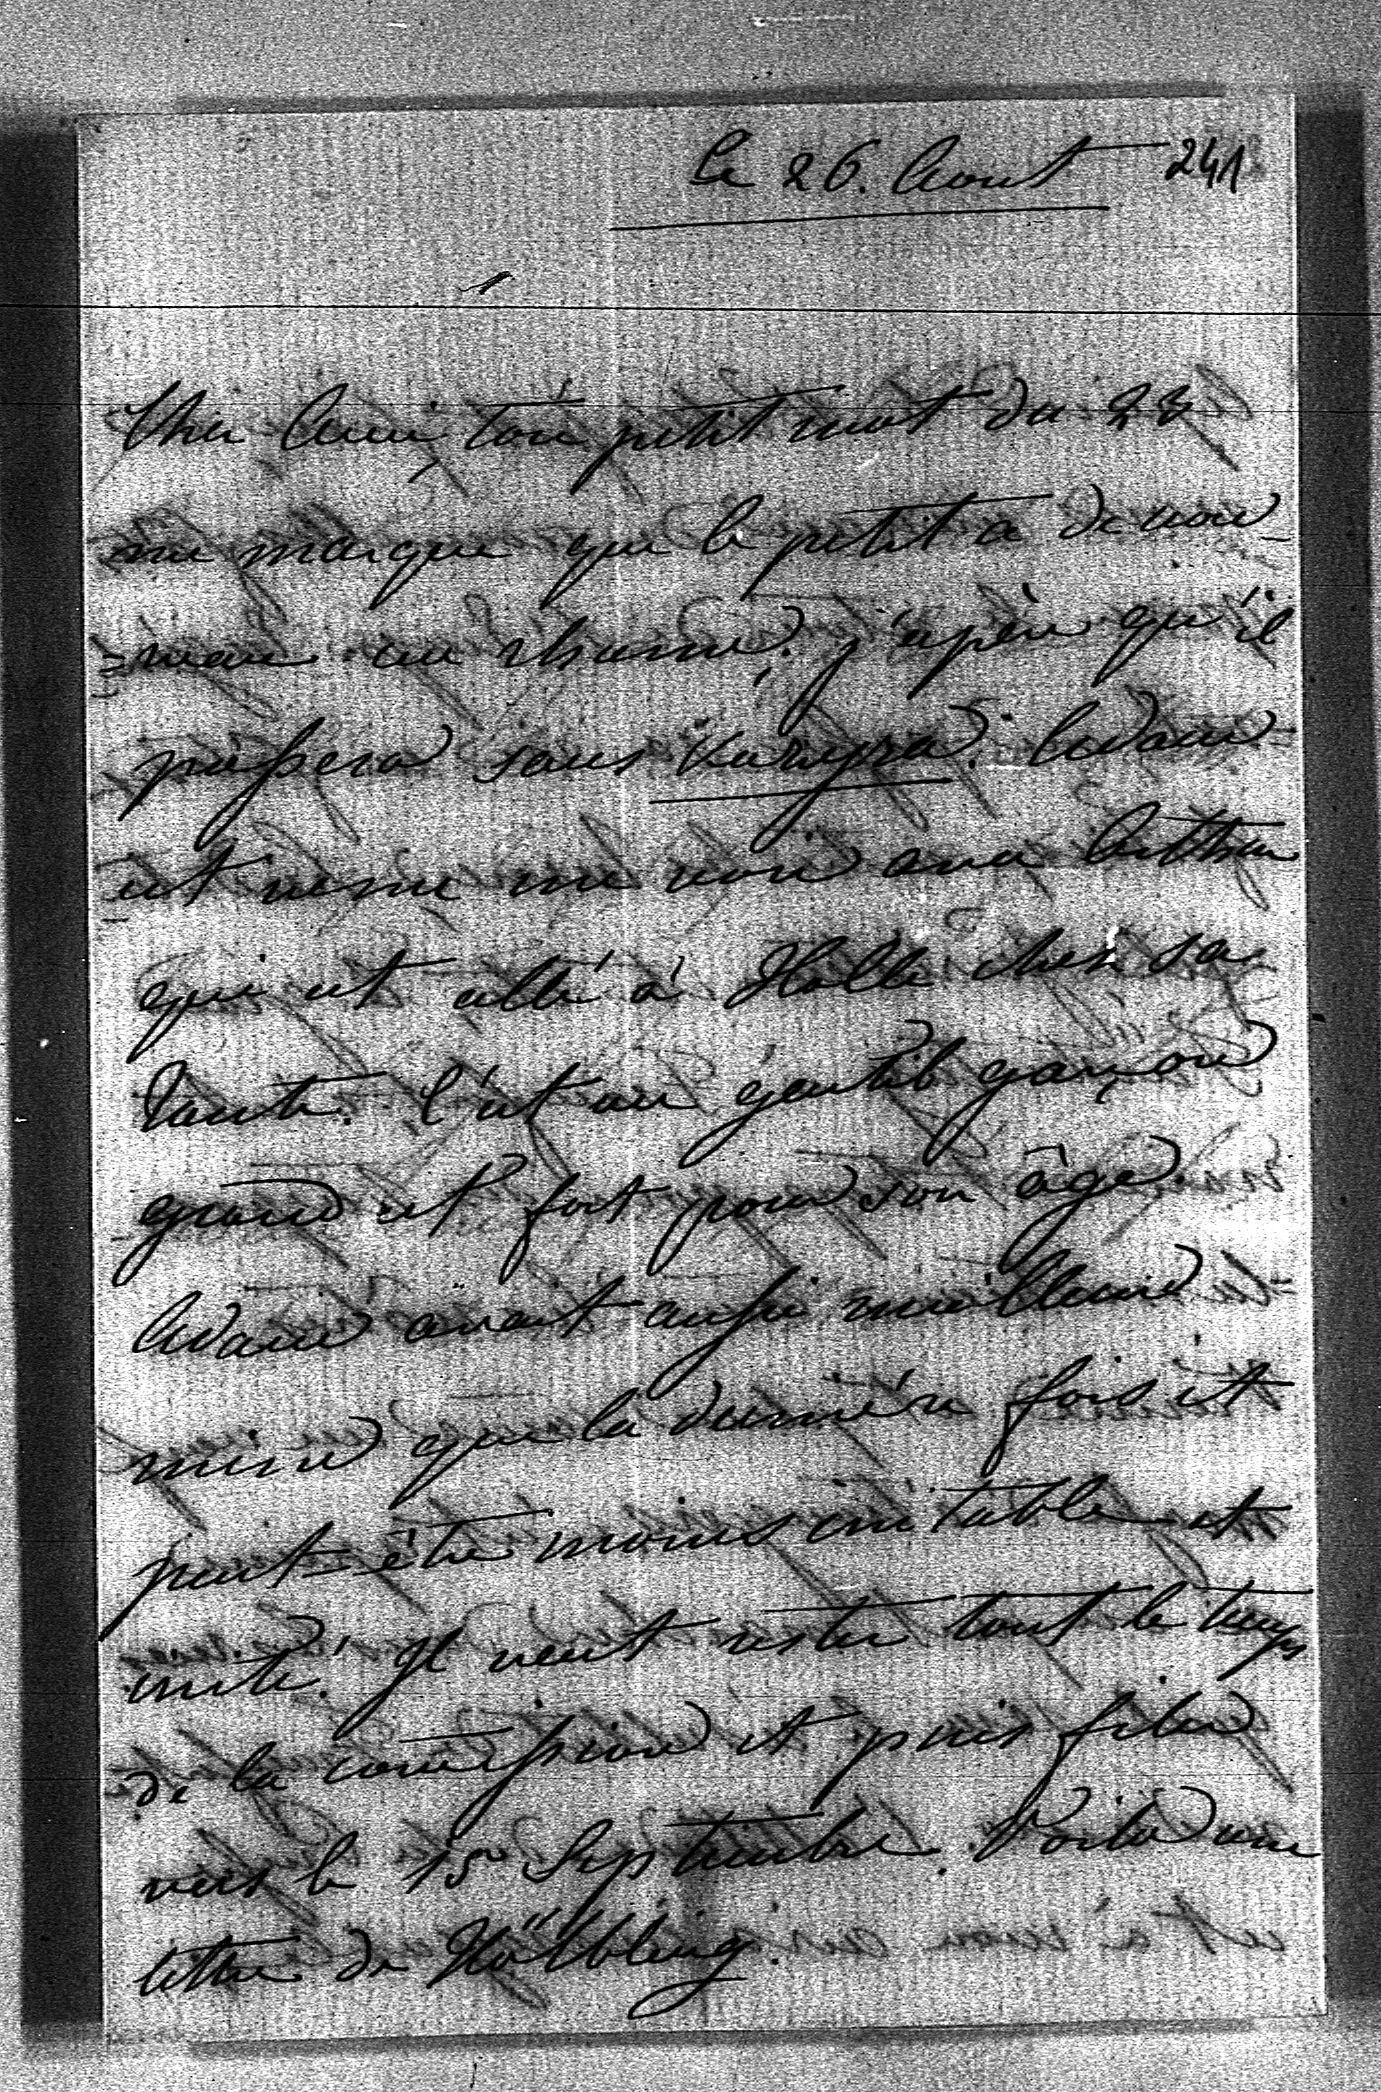 le 26. Aout 241
1
Cher Ami, ton petit mot du 23
me marque que le petit a de nou-
=veau un rhume. j'éspère qu'il
passera sans Karizsa. Adam
est venu me voir avec Arthur
qui est allé à Halle chez sa
tante. C'est un gentil garçon
grand et fort pour son âge.
Adam avait aussi meilleure
mine que la dernière fois et
peut-être moins irritable et
irrité. Il veut rester tout le temps
de la comission et puis filer
vers le 15 Septembre. Voila une
lettre de Hölbling.